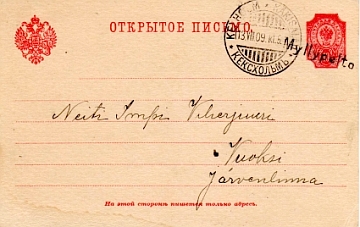 ОТКРЫТОЕ ПИСЬМО.
13 VII 09
КЕКСХОЛЬМЪ
Myllypelto
Neiti Impi
Vuoksi
Järvenlinna
На этой сторонѣ пишется только адресъ.